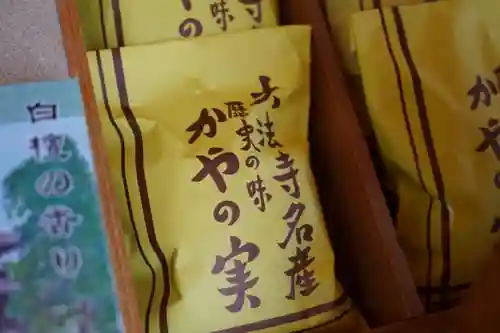 の味
やの
大法寺名産
歴史の味
かやの実
かや
白檀の香り